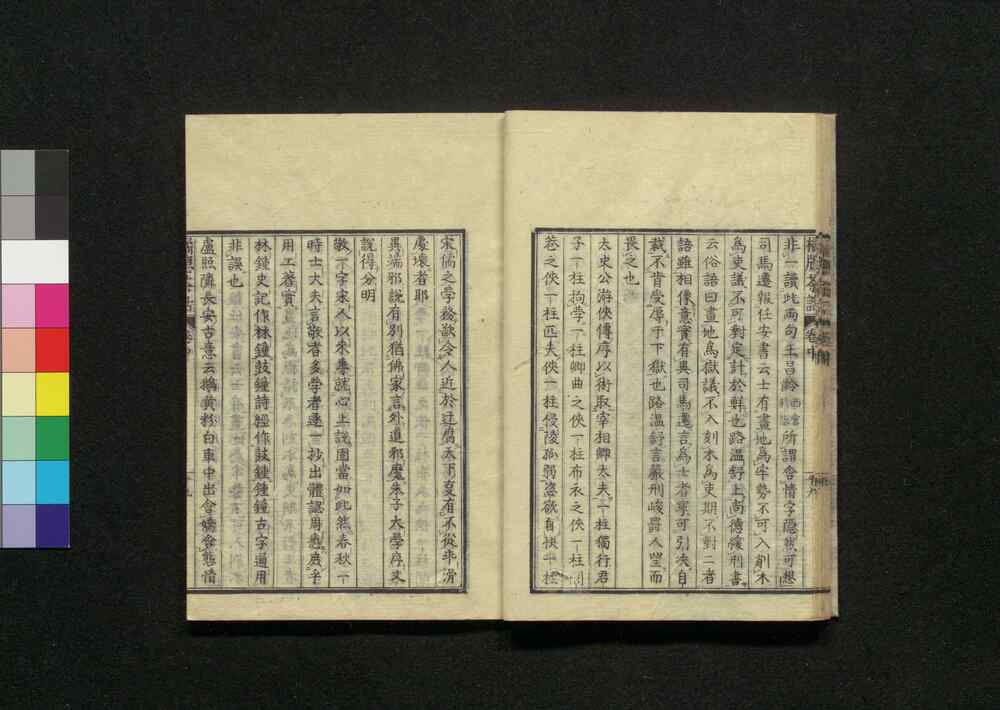 非一讀此両句王昌齡所謂含情字隱然可想
司馬遷報任安書云士有畫地為牢勢不可入削木
為吏議不可對定計於鮮也路溫舒上尚德緩刑書
云俗語曰畫地為獄議不入刻木為吏期不對二者
語雖相像意實有異司馬遷言為士者寧可引决自
裁不肯受辱于下獄也路溫舒言嚴刑峻罰人望而
畏之也
太史公游俠傳序以術取宰相卿大夫一柱獨行君
子一柱拘學一柱卿曲之俠一柱布衣之俠一柱閭
巷之俠一柱匹夫俠一柱侵陵孤弱恣欲自快一柱
宋儒之學務欲令人近於迂腐天下更有不從半滑
處壞者耶
異端邪說有別猶佛家言外道邪魔朱子大學序
說得分明
敬一字宋人以來專就心上說固當如此然春秋一
時士大夫言敬者多學者逐言抄出體認周應庶乎
用工著實
林鍾史記作林鐘鼓鐘詩經作鼓鍾鍾鐘古字通用
非誤也
盧照隣長安古意云鴉黃粉白車中出含嬌含態情
卷中